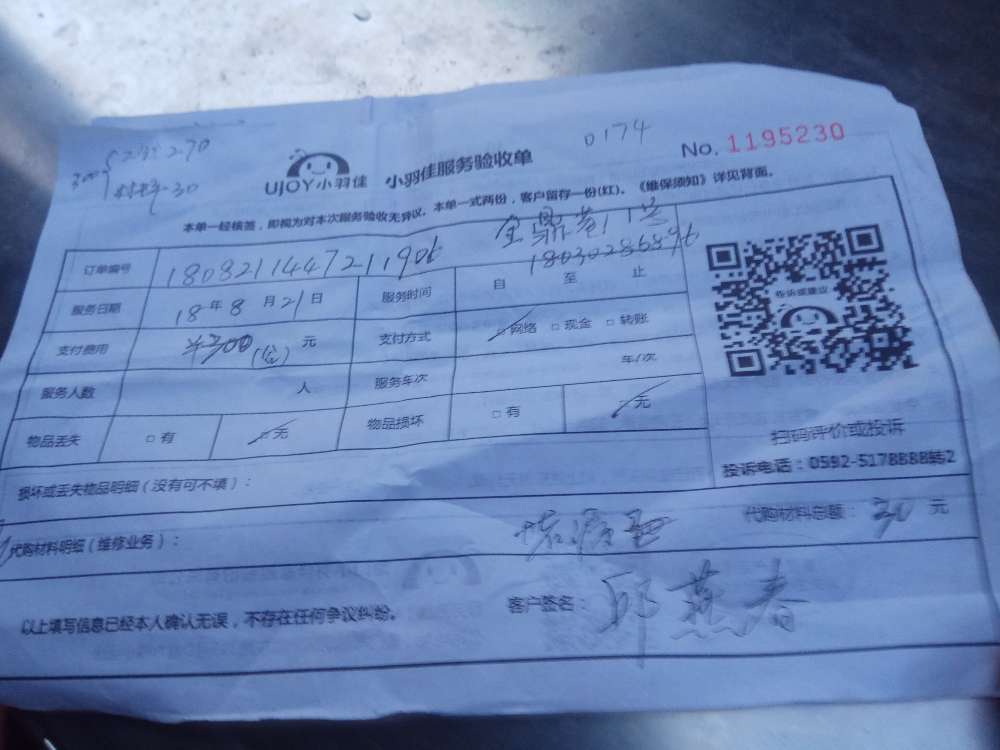 0174
No. 1195230
270
300 材料-30
UJOY小羽佳 小羽佳服务验收单
本单一经核签，即视为对本次服务验收无异议。本单一式两份，客户留存一份(红)。《维保须知》详见背面。
订单编号 1808211447211906
18030286896
服务日期 18年8月21日 服务时间 自 至 止
支付费用 ¥300 元 支付方式 □网络 □现金 □转账
服务人数 人 服务车次 车/次
物品丢失 □有 □无 物品损坏 □有 □无
投诉或建议
扫码评价或投诉
投诉电话：0592-5178888转2
损坏或丢失物品明细（没有可不填）：
代购材料明细（维修业务）： 代购材料总额：30元
以上填写信息已经本人确认无误，不存在任何争议纠纷。 客户签名：邱燕春